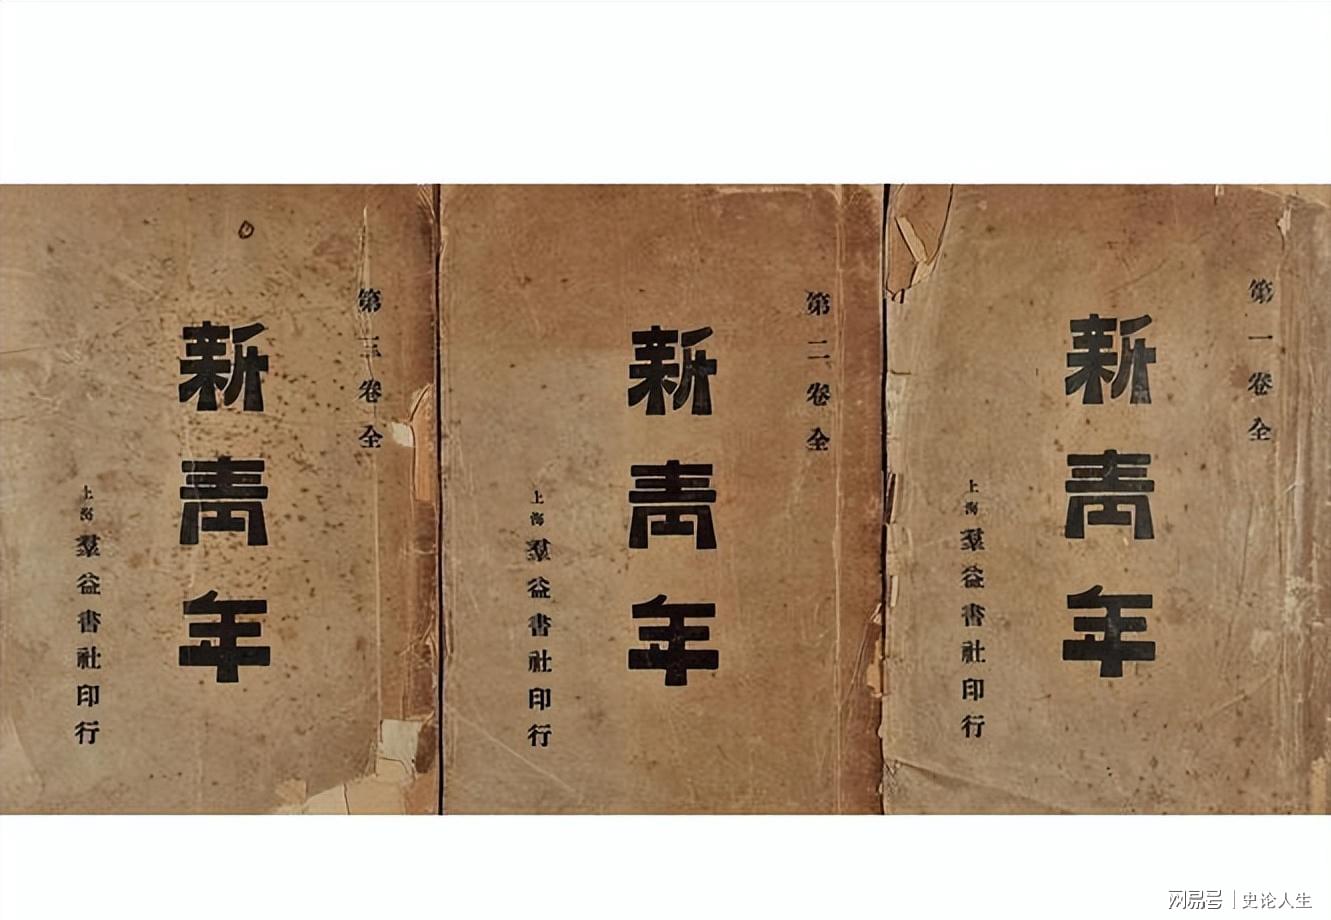 第一卷全
新青年
上海羣益書社印行
第二卷全
新青年
上海羣益書社印行
第三卷全
新青年
上海羣益書社印行
网易号 | 史论人生